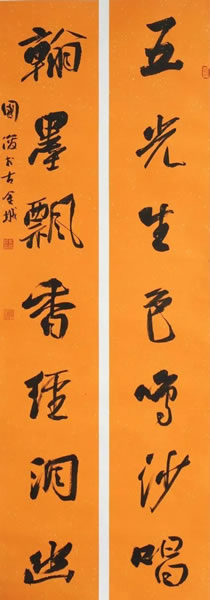 五光生色鸣沙唱
翰墨飘香经洞幽
国浚于古金城